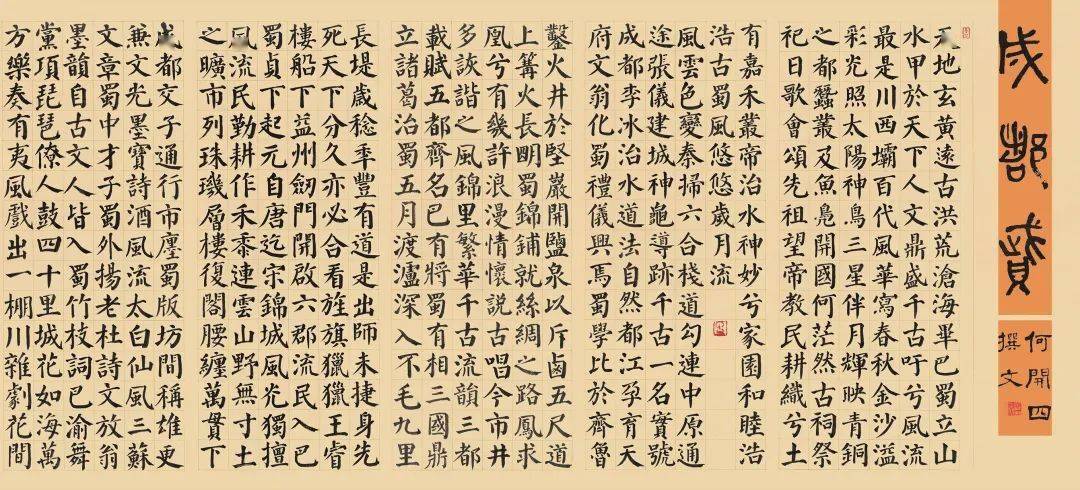 成都賦
何開四
撰文
天地玄黄遠古洪荒滄海畢巴蜀立山
水甲於天下人文鼎盛千古吁兮風流
最是川西壩百代風華寫春秋金沙溢
彩光照太陽神鳥三星伴月輝映青銅
之都蠶叢及魚鳧開國何茫然古祠祭
祀日歌會頌先祖望帝教民耕織兮土
有嘉禾叢帝治水神妙兮家園和睦浩
浩古蜀風悠悠歲月流
風雲色變秦掃六合棧道勾連中原通
途張儀建城神龜導跡千古一名實號
成都李冰治水道法自然都江孕育天
府文翁化蜀禮儀興焉蜀學比於齊魯
鑿火井於堅巖開鹽泉以斥鹵五尺道
上篝火長明蜀錦鋪就絲綢之路鳳求
凰兮有幾許浪漫情懷説古唱今市井
多詼諧之風錦里繁華千古流韻三都
載賦五都齊名巴有將蜀有相三國鼎
立諸葛治蜀五月渡瀘深入不毛九里
長堤歲稔年豐有道是出師未捷身先
死天下分久亦必合看旌旗獵獵王睿
樓船下益州劒門開啟六郡流民入巴
蜀貞下起元自唐迄宋錦城風光獨擅
風流民勤耕作禾黍連雲山野無寸土
之曠市列珠璣層樓復閣腰纏萬貫下
成都交子通行市廛蜀版坊間稱雄更
兼文光墨寶詩酒風流太白仙風三蘇
文章蜀中才子蜀外揚老杜詩文放翁
墨韻自古文人皆入蜀竹枝詞巴渝舞
黨項琵琶僚人鼓四十里城花如海萬
方樂奏有夷風戲出一棚川雜劇花間